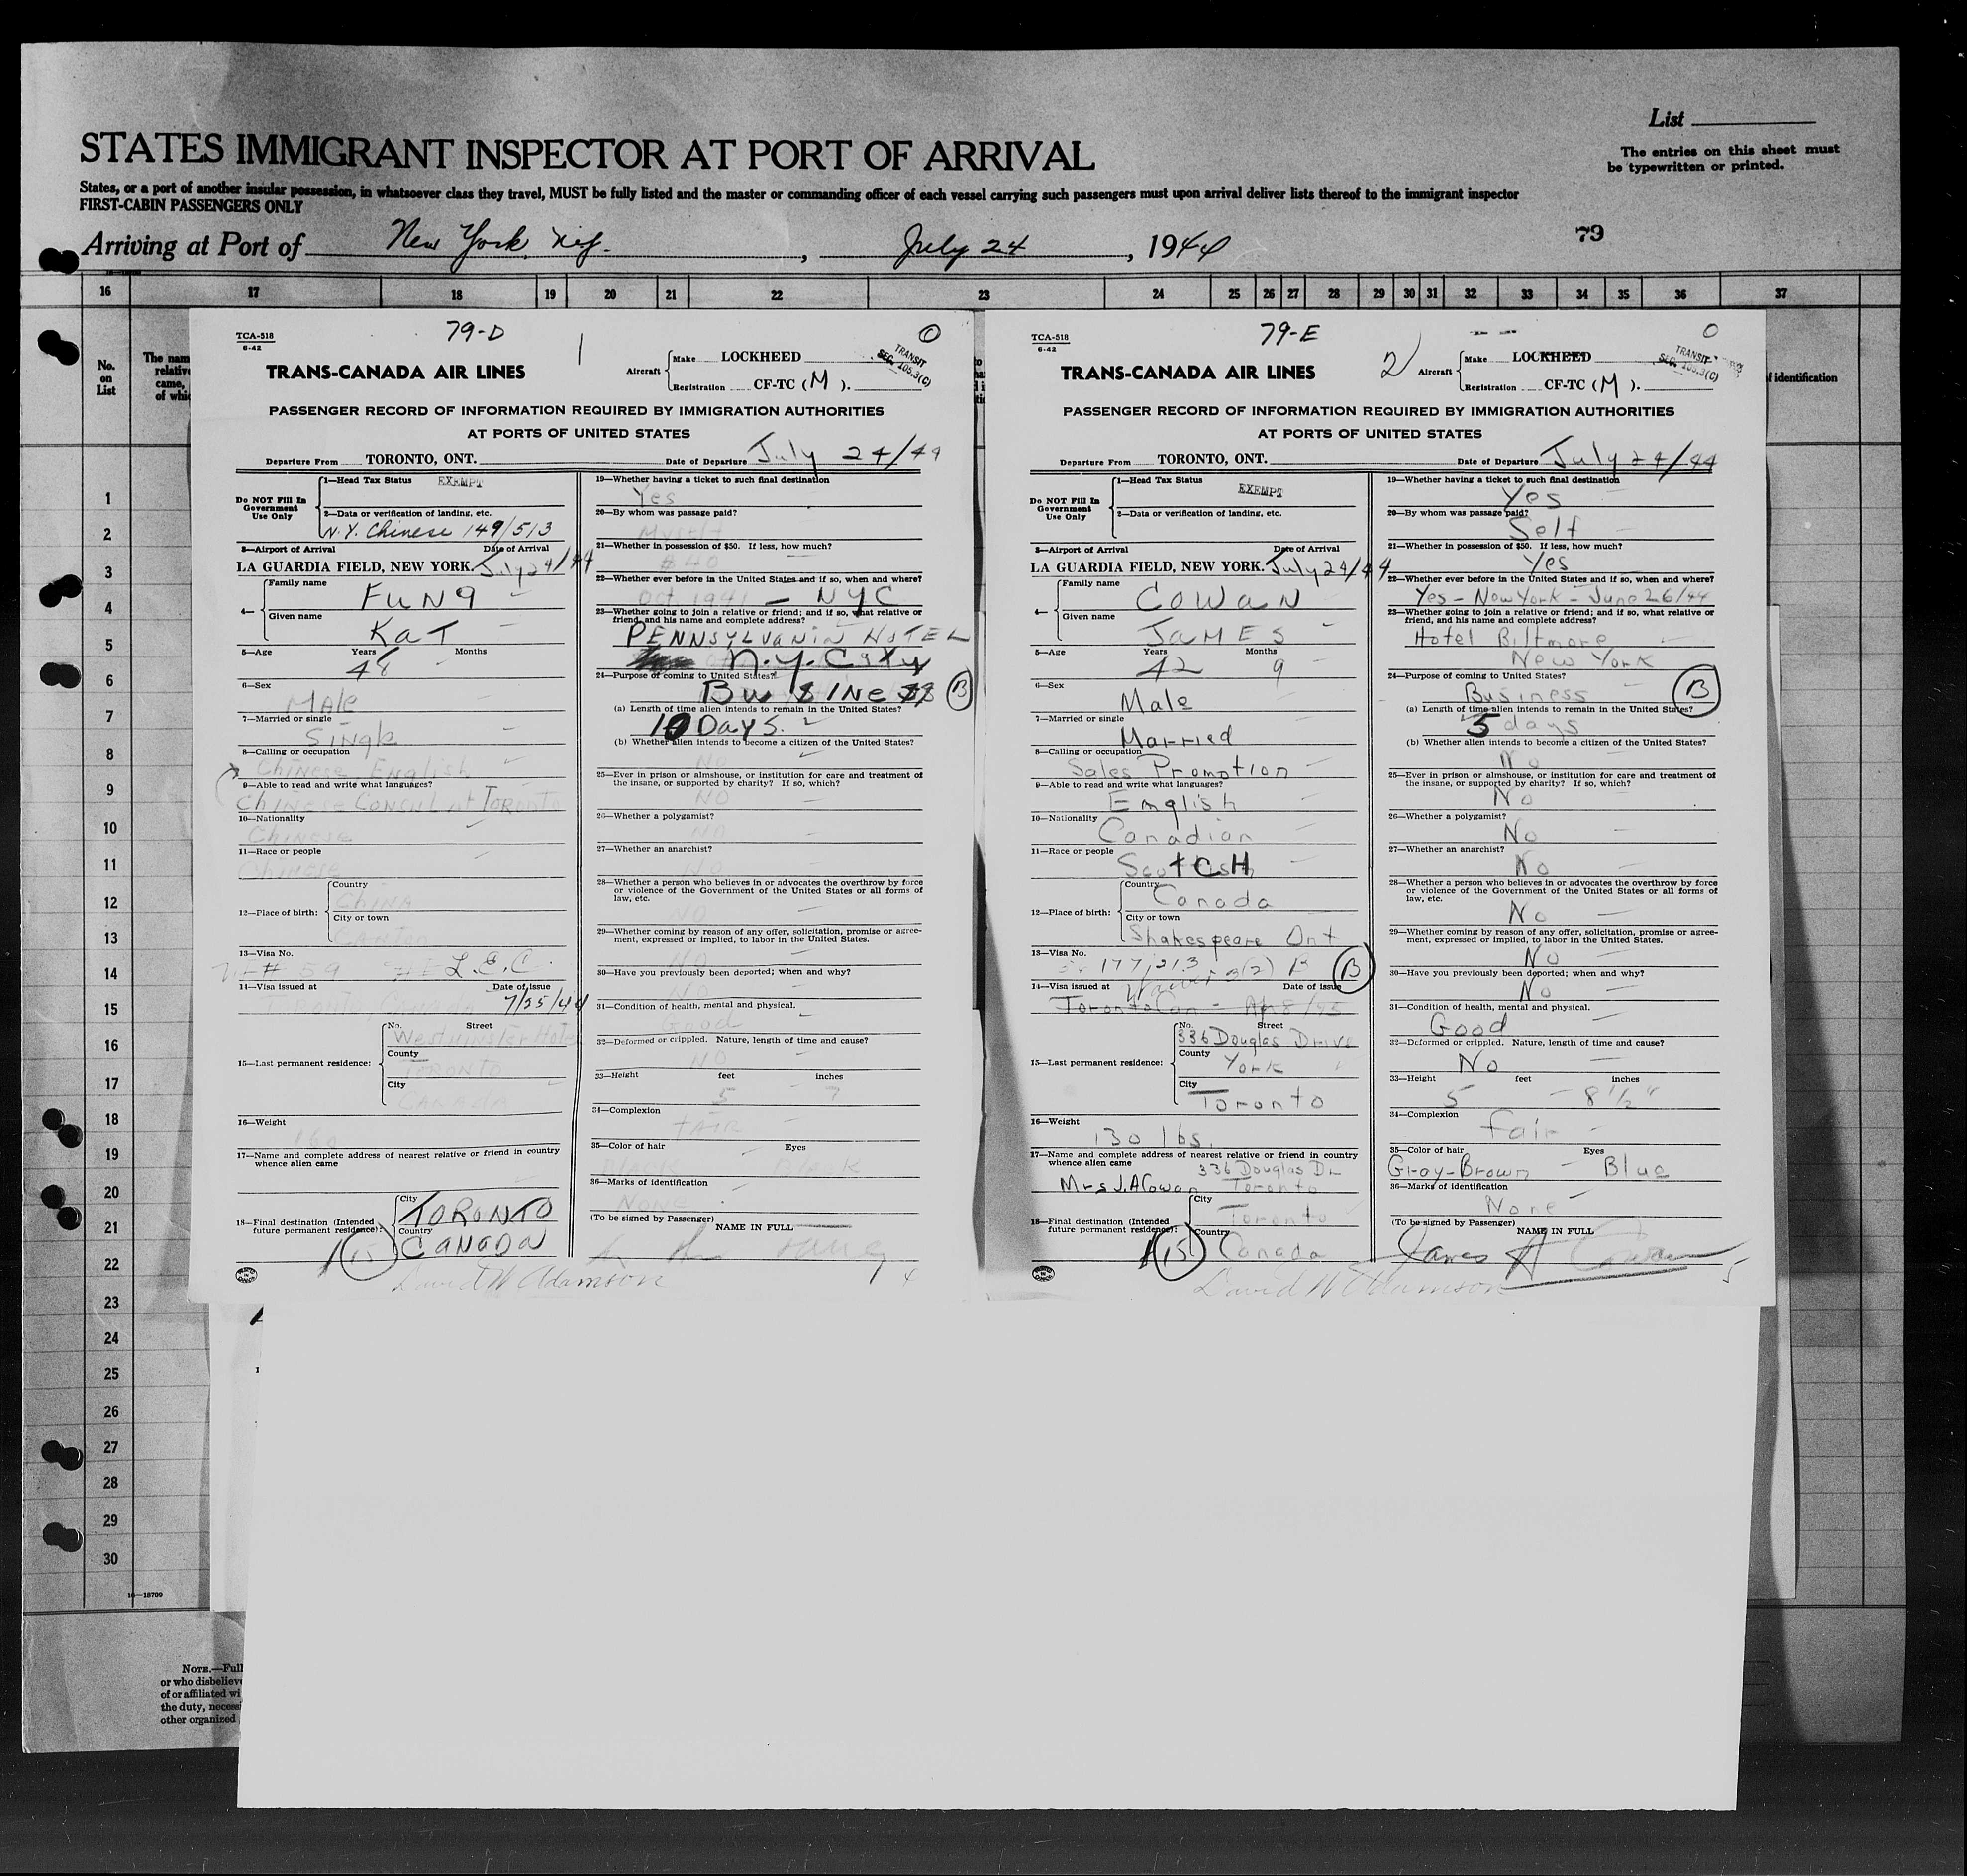 List
The entries on this sheet must
be typewritten or printed.
STATES IMMIGRANT INSPECTOR AT PORT OF ARRIVAL
States, or a port of another insular possession, in whatsoever class they travel, MUST be fully listed and the master or commanding officer of each vessel carrying such passengers must upon arrival deliver lists thereof to the immigrant inspector
FIRST-CABIN PASSENGERS ONLY
Arriving at Port of New York, July 24, 1944
79
16 17 18 19 20 21 22 23 24 25 26 27 28 29 30 31 32 33 34 35 36 37
No.
on
List
The nam
relative
came,
of whic
of identification
1
2
3
4
5
6
7
8
9
10
11
12
13
14
15
16
17
18
19
20
21
22
23
24
25
26
27
28
29
30
16—18709
NOTE.—Full
or who disbelieve
of or affiliated wi
the duty, necess
other organized
TCA-518
6-42
79-D
1
TRANS-CANADA AIR LINES
Aircraft
Make LOCKHEED
Registration CF-TC (M).
TRANSIT
SEC. 105.3(C)
PASSENGER RECORD OF INFORMATION REQUIRED BY IMMIGRATION AUTHORITIES
AT PORTS OF UNITED STATES
Departure From TORONTO, ONT. Date of Departure July 24/44
Do NOT Fill In
Government
Use Only
1—Head Tax Status EXEMPT
2—Data or verification of landing, etc.
N.Y. Chinese 149/513
3—Airport of Arrival Date of Arrival
LA GUARDIA FIELD, NEW YORK. July 24/44
4—
Family name
FUNG
Given name
KAT
5—Age Years Months
48
6—Sex
MALE
7—Married or single
Single
8—Calling or occupation
Chinese English
9—Able to read and write what languages?
CHINESE CONSUL AT TORONTO
10—Nationality
CHINESE
11—Race or people
CHINESE
12—Place of birth:
Country
CHINA
City or town
CANTON
13—Visa No.
59 L.E.C.
14—Visa issued at Date of issue
7/25/44
15—Last permanent residence:
No. Street
Westminster Hotel
County
TORONTO
City
CANADA
16—Weight
160
17—Name and complete address of nearest relative or friend in country
whence alien came
18—Final destination (Intended
future permanent residence):
City
TORONTO
Country
CANADA
15
David W Adamson
19—Whether having a ticket to such final destination
Yes
20—By whom was passage paid?
Myself
21—Whether in possession of $50. If less, how much?
$40
22—Whether ever before in the United States and if so, when and where?
Oct 1941 — NYC
23—Whether going to join a relative or friend; and if so, what relative or
friend, and his name and complete address?
PENNSYLVANIA HOTEL
N.Y. City
24—Purpose of coming to United States?
BUSINESS B
(a) Length of time alien intends to remain in the United States?
10 Days.
(b) Whether alien intends to become a citizen of the United States?
NO
25—Ever in prison or almshouse, or institution for care and treatment of
the insane, or supported by charity? If so, which?
NO
26—Whether a polygamist?
NO
27—Whether an anarchist?
NO
28—Whether a person who believes in or advocates the overthrow by force
or violence of the Government of the United States or all forms of
law, etc.
NO
29—Whether coming by reason of any offer, solicitation, promise or agree-
ment, expressed or implied, to labor in the United States.
NO
30—Have you previously been deported; when and why?
NO
31—Condition of health, mental and physical.
Good
32—Deformed or crippled. Nature, length of time and cause?
NO
33—Height feet inches
5 7
34—Complexion
FAIR
35—Color of hair Eyes
BLACK Black
36—Marks of identification
NONE
(To be signed by Passenger)
NAME IN FULL
4
TCA-518
6-42
79-E
2
TRANS-CANADA AIR LINES
Aircraft
Make LOCKHEED
Registration CF-TC (M).
TRANSIT
SEC. 105.3(C)
PASSENGER RECORD OF INFORMATION REQUIRED BY IMMIGRATION AUTHORITIES
AT PORTS OF UNITED STATES
Departure From TORONTO, ONT. Date of Departure July 24/44
Do NOT Fill In
Government
Use Only
1—Head Tax Status
EXEMPT
2—Data or verification of landing, etc.
3—Airport of Arrival Date of Arrival
LA GUARDIA FIELD, NEW YORK. July 24/44
4—
Family name
COWAN
Given name
JAMES
5—Age Years Months
42 9
6—Sex
Male
7—Married or single
Married
8—Calling or occupation
Sales Promotion
9—Able to read and write what languages?
English
10—Nationality
Canadian
11—Race or people
SCOTCH
12—Place of birth:
Country
Canada
City or town
Shakespeare Ont
13—Visa No.
177,213 B
14—Visa issued at Waiver 3(2) Date of issue
Toronto Can - Ap 8/45
15—Last permanent residence:
No. Street
336 Douglas Drive
County
York
City
Toronto
16—Weight
130 lbs.
17—Name and complete address of nearest relative or friend in country
whence alien came 336 Douglas Dr
Mrs J. A Cowan Toronto
18—Final destination (Intended
future permanent residence):
City
Toronto
Country
Canada
15
David W Adamson
19—Whether having a ticket to such final destination
Yes
20—By whom was passage paid?
Self
21—Whether in possession of $50. If less, how much?
Yes
22—Whether ever before in the United States and if so, when and where?
Yes - New York - June 26/44
23—Whether going to join a relative or friend; and if so, what relative or
friend, and his name and complete address?
Hotel Biltmore
New York
24—Purpose of coming to United States?
Business B
(a) Length of time alien intends to remain in the United States?
5 days
(b) Whether alien intends to become a citizen of the United States?
No
25—Ever in prison or almshouse, or institution for care and treatment of
the insane, or supported by charity? If so, which?
No
26—Whether a polygamist?
No
27—Whether an anarchist?
No
28—Whether a person who believes in or advocates the overthrow by force
or violence of the Government of the United States or all forms of
law, etc.
No
29—Whether coming by reason of any offer, solicitation, promise or agree-
ment, expressed or implied, to labor in the United States.
No
30—Have you previously been deported; when and why?
No
31—Condition of health, mental and physical.
Good
32—Deformed or crippled. Nature, length of time and cause?
No
33—Height feet inches
5 - 8 1/2"
34—Complexion
Fair
35—Color of hair Eyes
Gray-Brown Blue
36—Marks of identification
None
(To be signed by Passenger)
NAME IN FULL
James A Cowan
5